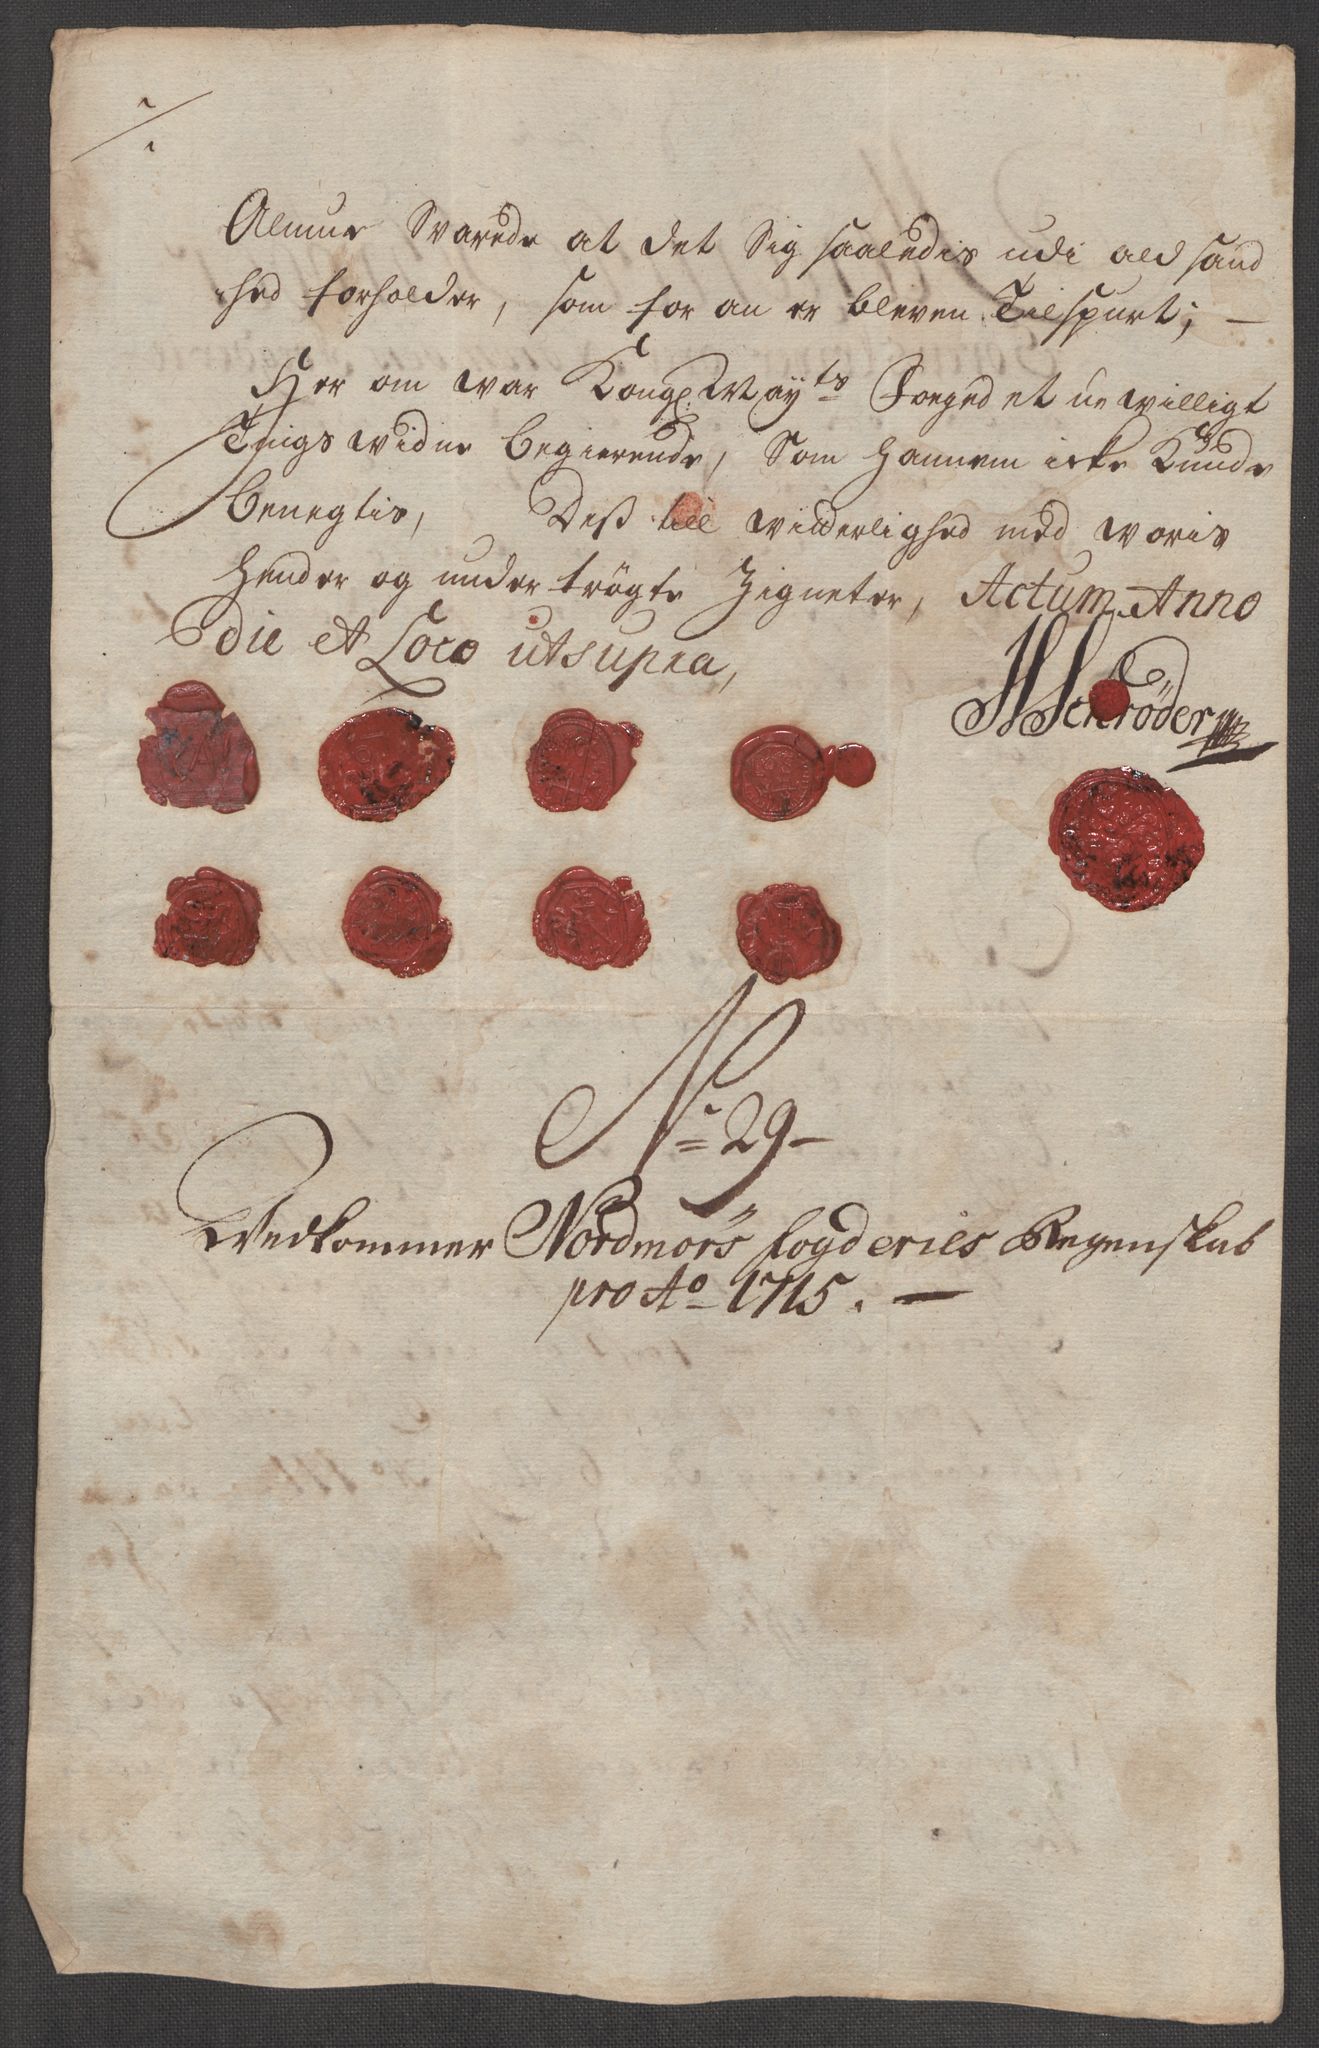 Almue Svarede at det Sig saaledis udi ald sand
hed forholder, som for an er bleven Tilspurt; —
Her om war Kongl: Mayts Foeged et uewilligt
Tings widne begierende, Som hannem icke Kunde
benegtis, Deß till witterlighed med woris
hender og under trögte Zigneter, Actum Anno
die et Loco ut supra,
HSchröder
No 29
Wedkommer Nordmörs fogderies Regenskab
pro Ao 1715. —